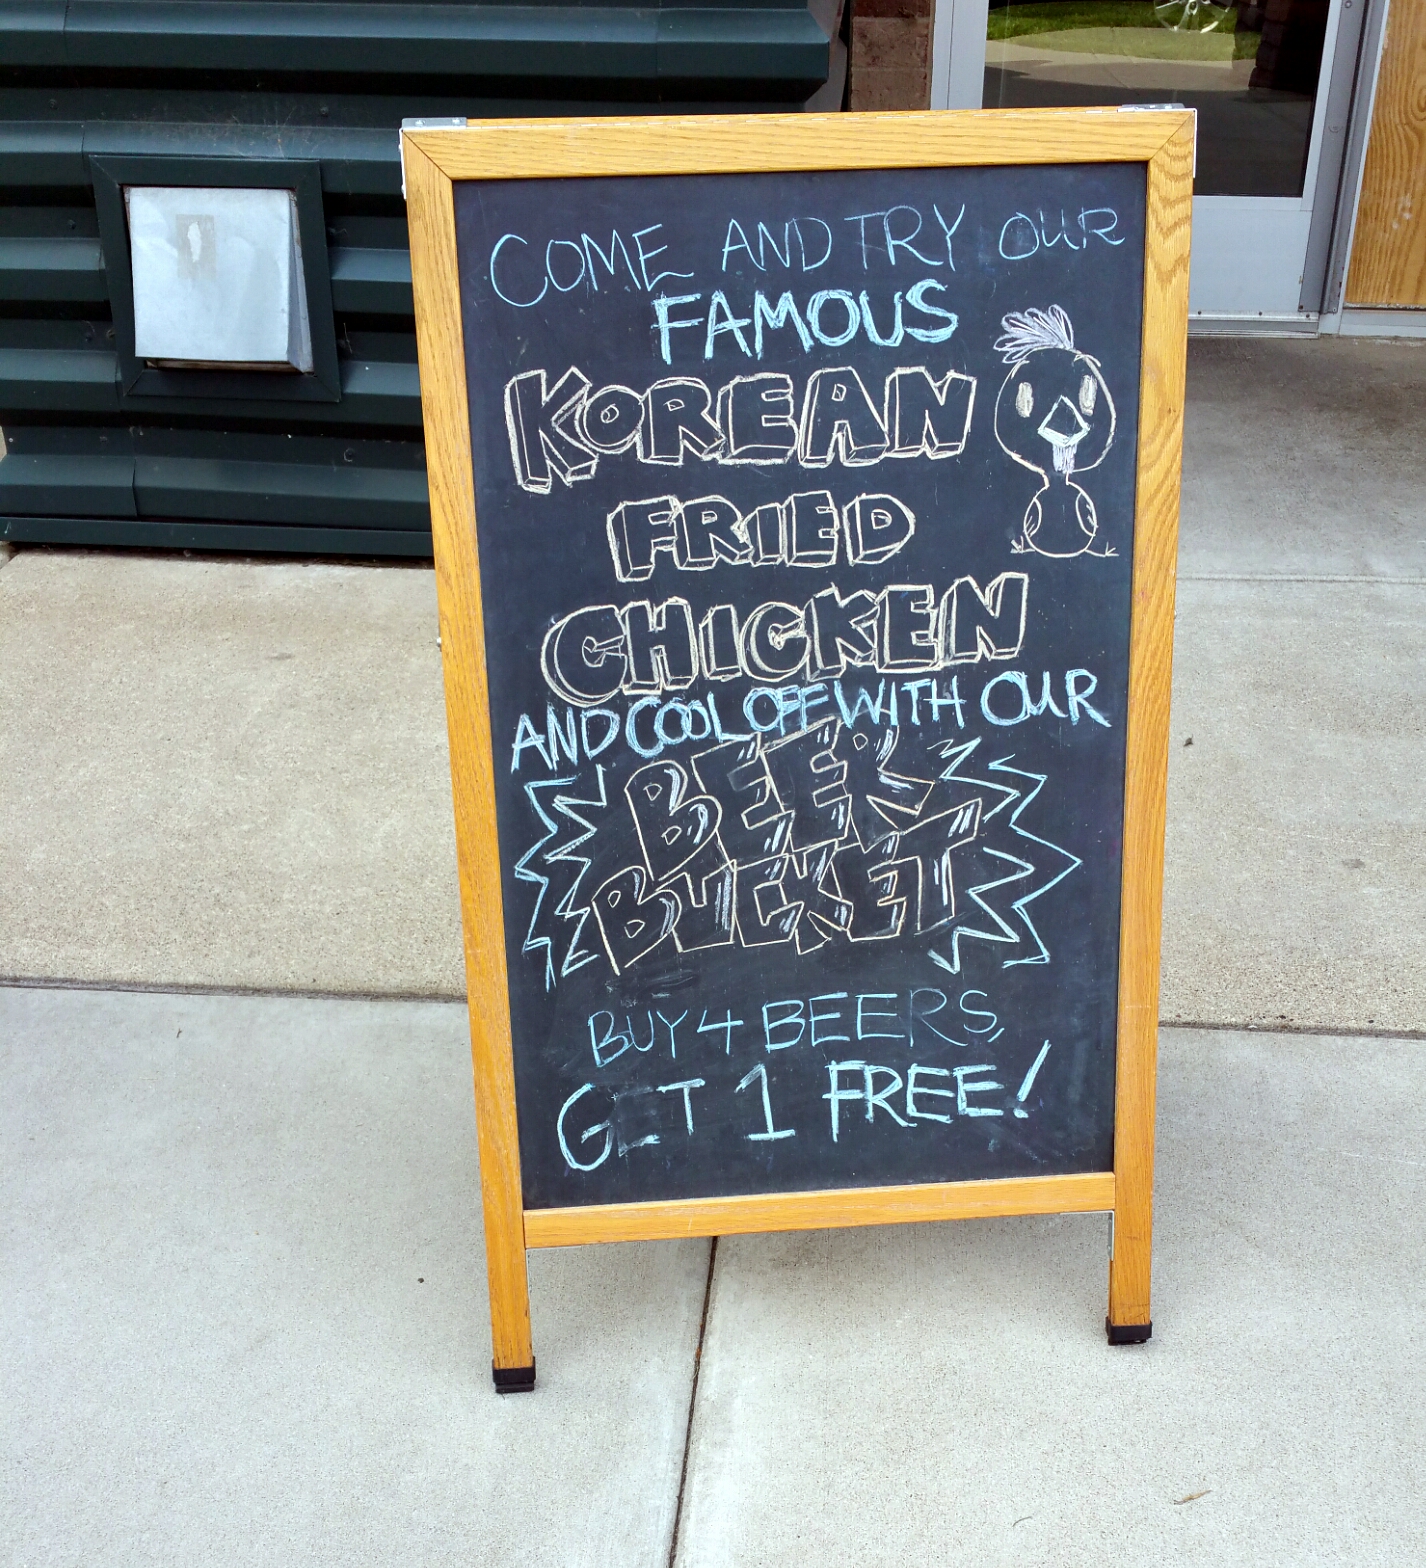 COME AND TRY OUR
FAMOUS
KOREAN
FRIED
CHICKEN
AND COOL OFF WITH OUR
BEER
BUCKET
BUY 4 BEERS,
GET 1 FREE!